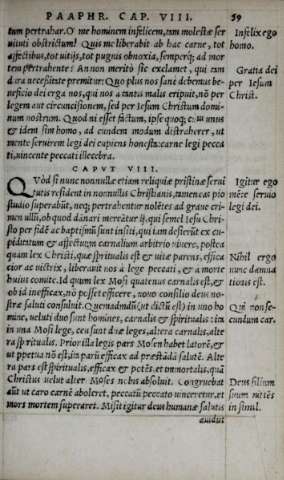 PAAPHR. CAP. VIII. 59
tum pertrahar. O me hominem infelicem, tam molestæ ser
uituti obstrictum! Quis me liberabit ab hac carne, tot
affectibus, tot uitijs, tot pugnis obnoxia, semperq; ad mor
tem pertrahente? An non meritò sic exclamet, qui tam
dira necessitate premitur? Quo plus nos sanè debemus be-
neficio dei erga nos, qui nos à tantis malis eripuit, nō per
legem aut circuncisionem, sed per Iesum Christum domi-
num nostrum. Quod ni esset factum, ipse quoq; unus
& idem sim homo, ad eundem modum distraherer, ut
mente seruirem legi dei cupiens honesta: carne legi pecca
ti, uincente peccati illecebra.
CAPVT VIII.
QVòd si nunc nonnullæ etiam reliquiæ pristinæ serui
tutis resident in nonnullis Christianis, tamen eas pio
studio superabūt, neq; pertrahentur nolētes ad graue cri-
men ulli, ob quod dānari mereātur ij, qui semel Iesu Chri-
sto per fidē ac baptismū sunt insiti, qui iam desierūt ex cu-
piditatum & affectuum carnalium arbitrio uiuere, postea
quam lex Christi, quæ spiritualis est & uitæ parens, effica
cior ac uictrix, liberauit nos à lege peccati, & à morte
huius comite. Id quum lex Mosi quatenus carnalis est, &
ob id inefficax, nō posset efficere, nouo consilio deus no-
stræ saluti consuluit. Quemadmodū (ut dictū est) in uno ho
mine, ueluti duo sunt homines, carnalis & spiritualis: ita
in una Mosi lege, ceu sunt duæ leges, altera carnalis, alte
ra spiritualis. Prior illa legis pars Mosen habet latorē, &
ut perpetua nō est, ita parū efficax ad præstādā salutē. Alte
ra pars est spiritualis, efficax & potēs, et immortalis, quā
Christus uelut alter Moses nobis absoluit. Congruebat
aūt ut caro carnē aboleret, peccatū peccato uinceretur, et
mors mortem superaret. Misit igitur deus humanæ salutis
auidus
Infelix ego
homo.
Gratia dei
per Iesum
Christ.
Igitur ego
mēte seruio
legi dei.
Nihil ergo
nunc damna
tionis est.
Qui non se-
cundum car.
Deus filium
suum mittēs
in simil.